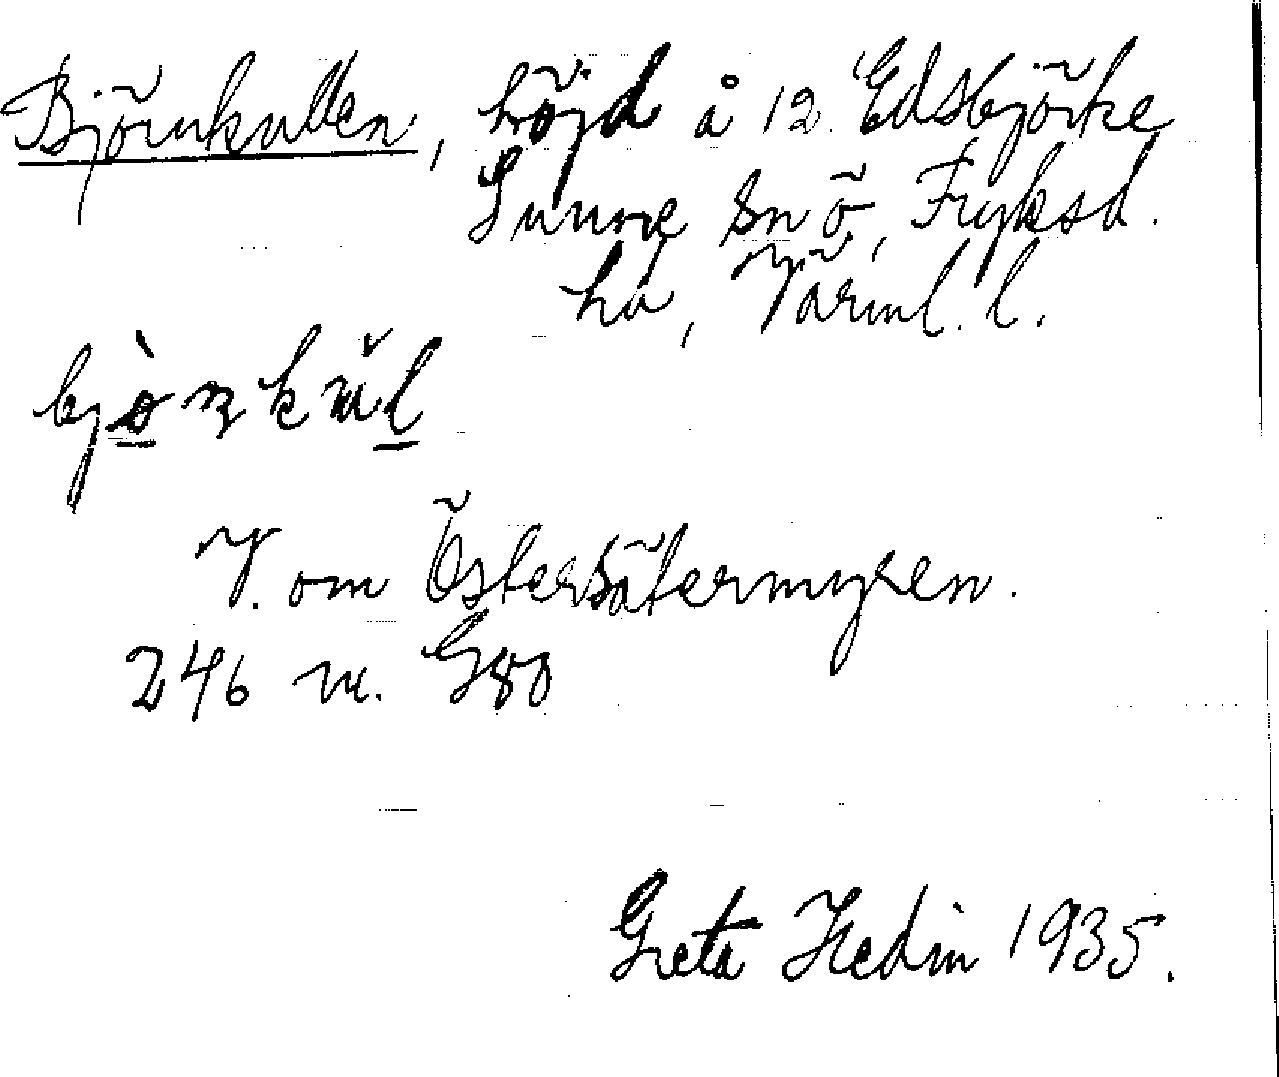 Björnkullen, höjd å 12. Edsbjörke
Sunne sn ö, Fryksd.
hd, Värml. l.
V. om Östersätermyren.
246 m. G80
Greta Hedin 1935.